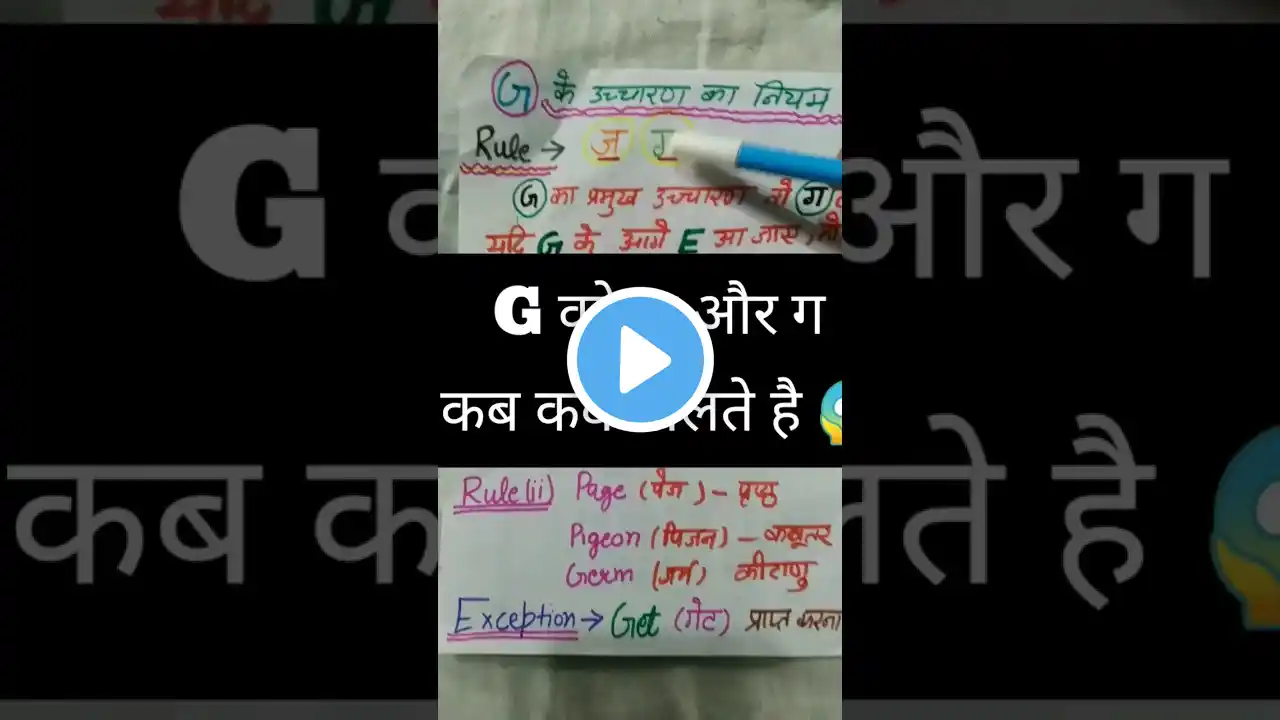 G के उच्चारण का नियम
Rule → ज ग
G का प्रमुख उच्चारण तो ग
यदि G के आगे E आ जाए, तो
G और ग
कब कब है 😱
Rule (ii) Page (पेज) – पृष्ठ
Pigeon (पिजन) – कबूतर
Germ (जर्म) कीटाणु
Exception → Get (गेट) प्राप्त करना